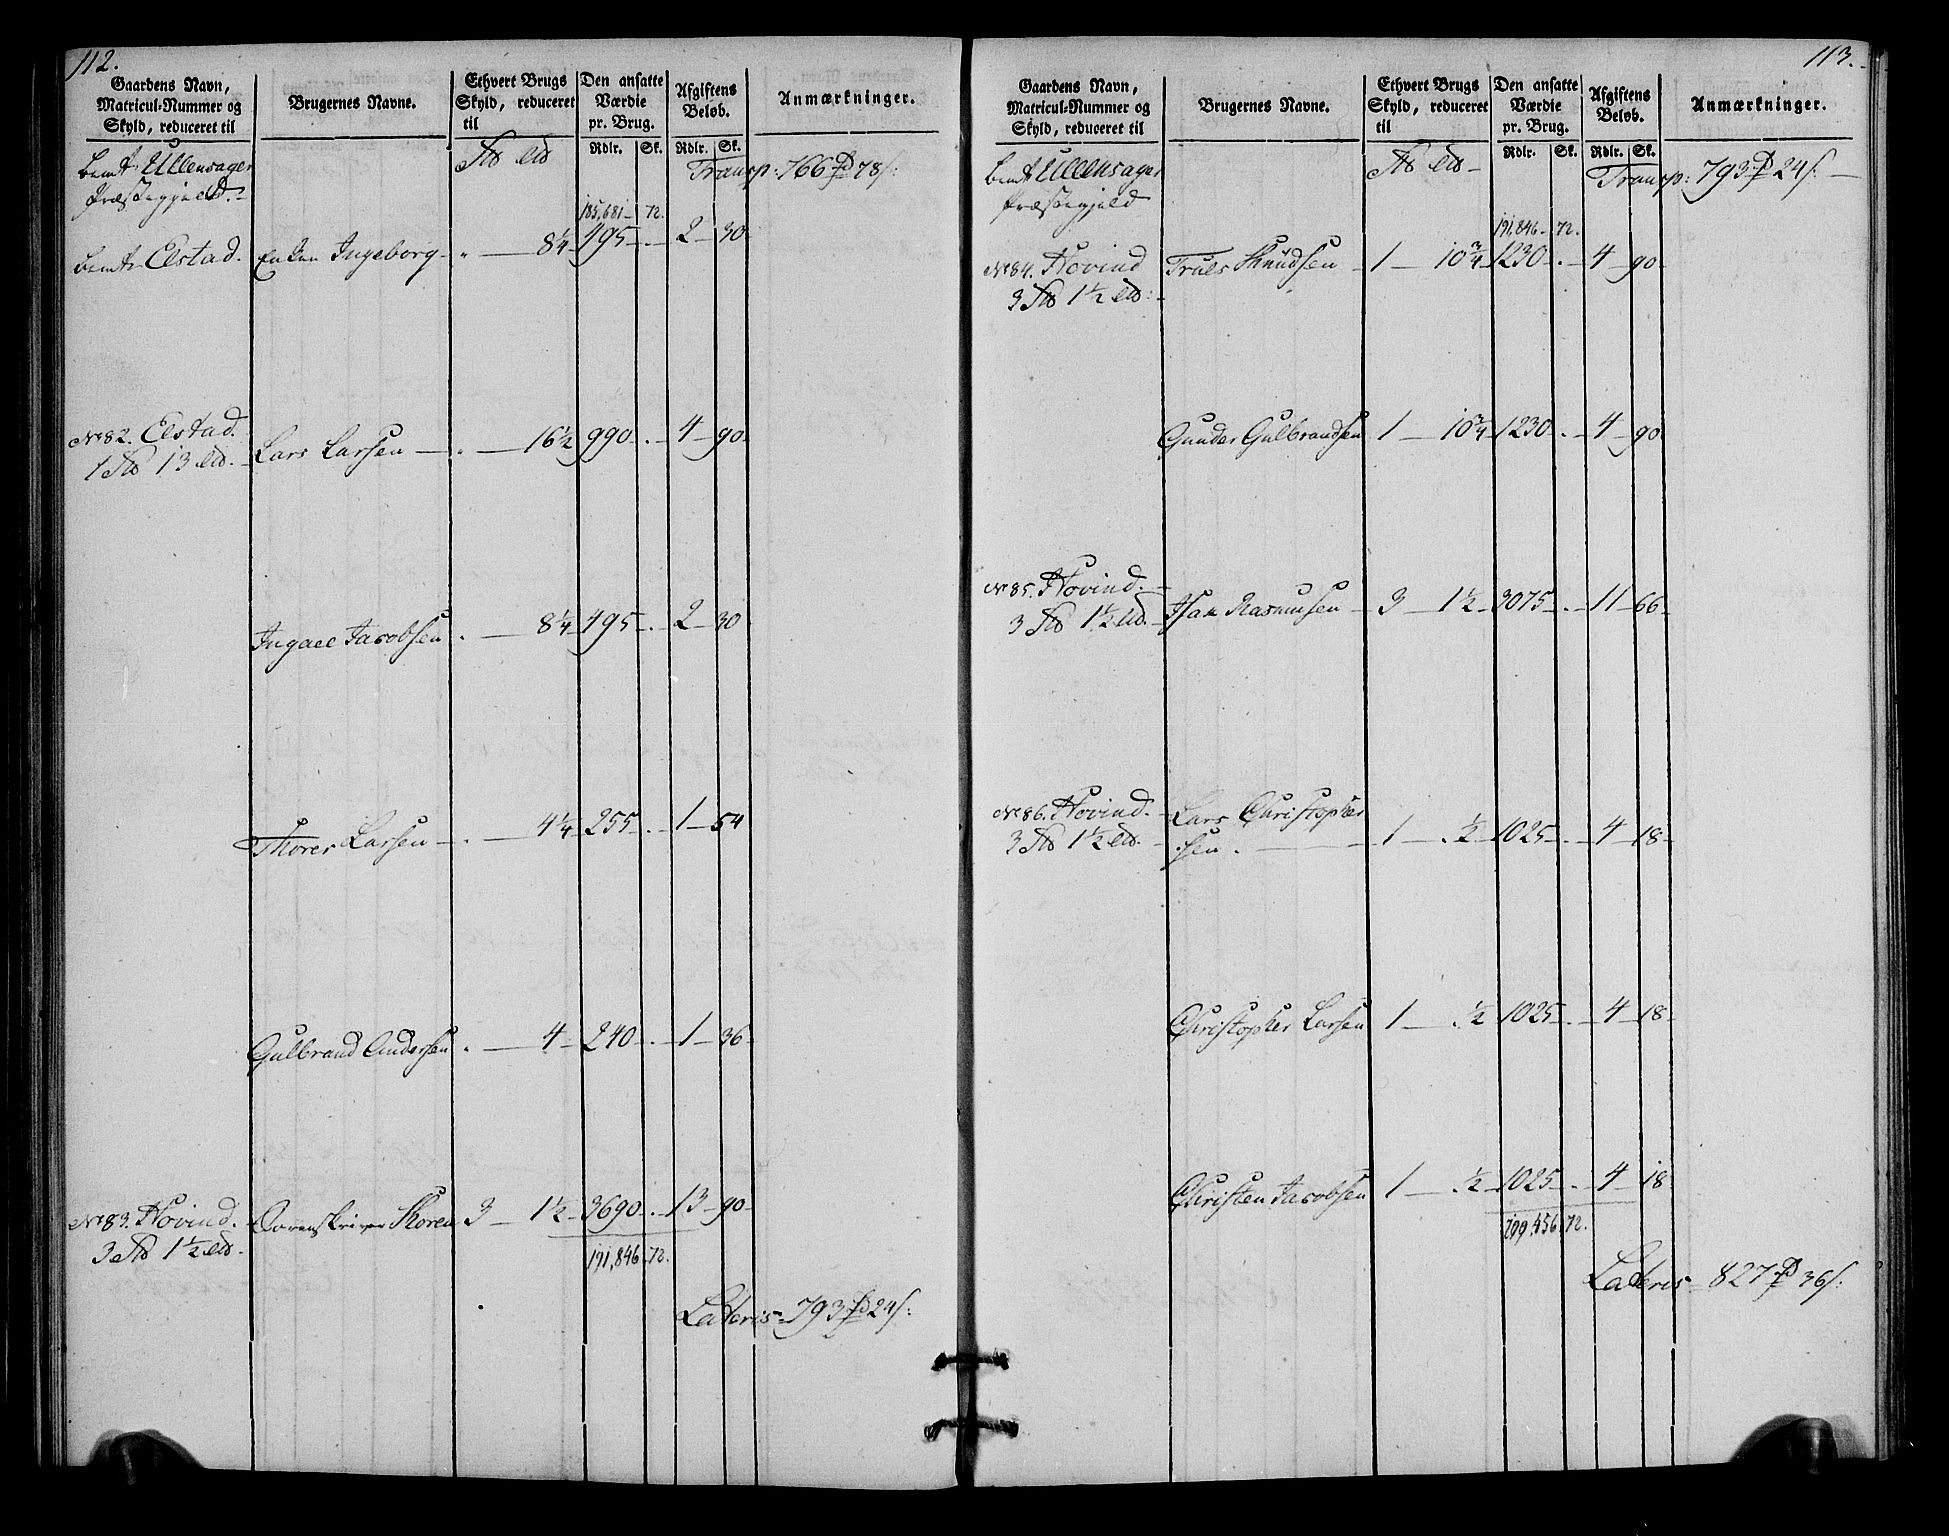 112.
Gaardens Navn, Matricul-Nummer og Skyld, reduceret til
Brugernes Navne.
Ethvert Brugs Skyld, reduceret til
Den ansatte Værdie pr. Brug.
Afgiftens Beløb.
Anmærkninger.
Rdlr. Sk. Rdlr. Sk.
Ullensager
Præstegjeld.
Transp: 766 78
185,681 72.
Elstad. Enken Ingeborg 8 1/4 495 2 30
No 82. Elstad. Lars Larsen 16 1/2 990 4 90
1 13
Jacobsen 8 1/4 495 2 30
Thorer Larsen 4 1/4 255 1 54
Gulbrand Andersen 4 240 1 36
No 83. Hovind. Sorenskriver Thoren 3 1 1/2 3690 13 90
3 1 1/2
191,846 72.
Lateris 793 24
113.
Gaardens Navn, Matricul-Nummer og Skyld, reduceret til
Brugernes Navne.
Ethvert Brugs Skyld, reduceret til
Den ansatte Værdie pr. Brug.
Afgiftens Beløb.
Anmærkninger.
Rdlr. Sk. Rdlr. Sk.
Ullensager
Præstegjeld
Transp: 793 24
191,846 72.
No 84. Hovind Truls Knudsen 1 10 3/4 1230 4 90
3 1 1/2
Gunder Gulbrandsen 1 10 3/4 1230 4 90
No 85. Hovind. Isak Rasmusen 3 1 1/2 3075 11 66
3 1 1/2
No 86. Hovind. Lars Christopher
3 1 1/2 sen. 1 1/2 1025 4 18
Christopher Larsen 1 1/2 1025 4 18
Christen Jacobsen 1 1/2 1025 4 18
456 72.
Lateris 827 36